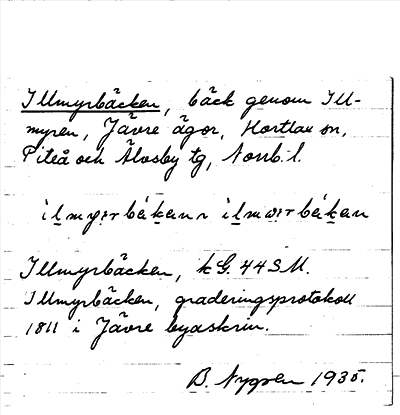 Illmyrbäcken, bäck genom Ill-
myren, Jävre ägor, Hortlax sn,
Piteå och Älvsby tg, Norrb. l.
Illmyrbäcken, kG. 44 S.M.
Illmyrbäcken, graderingsprotokoll
1811 i Jävre byaskrin.
B. Nygren 1935.